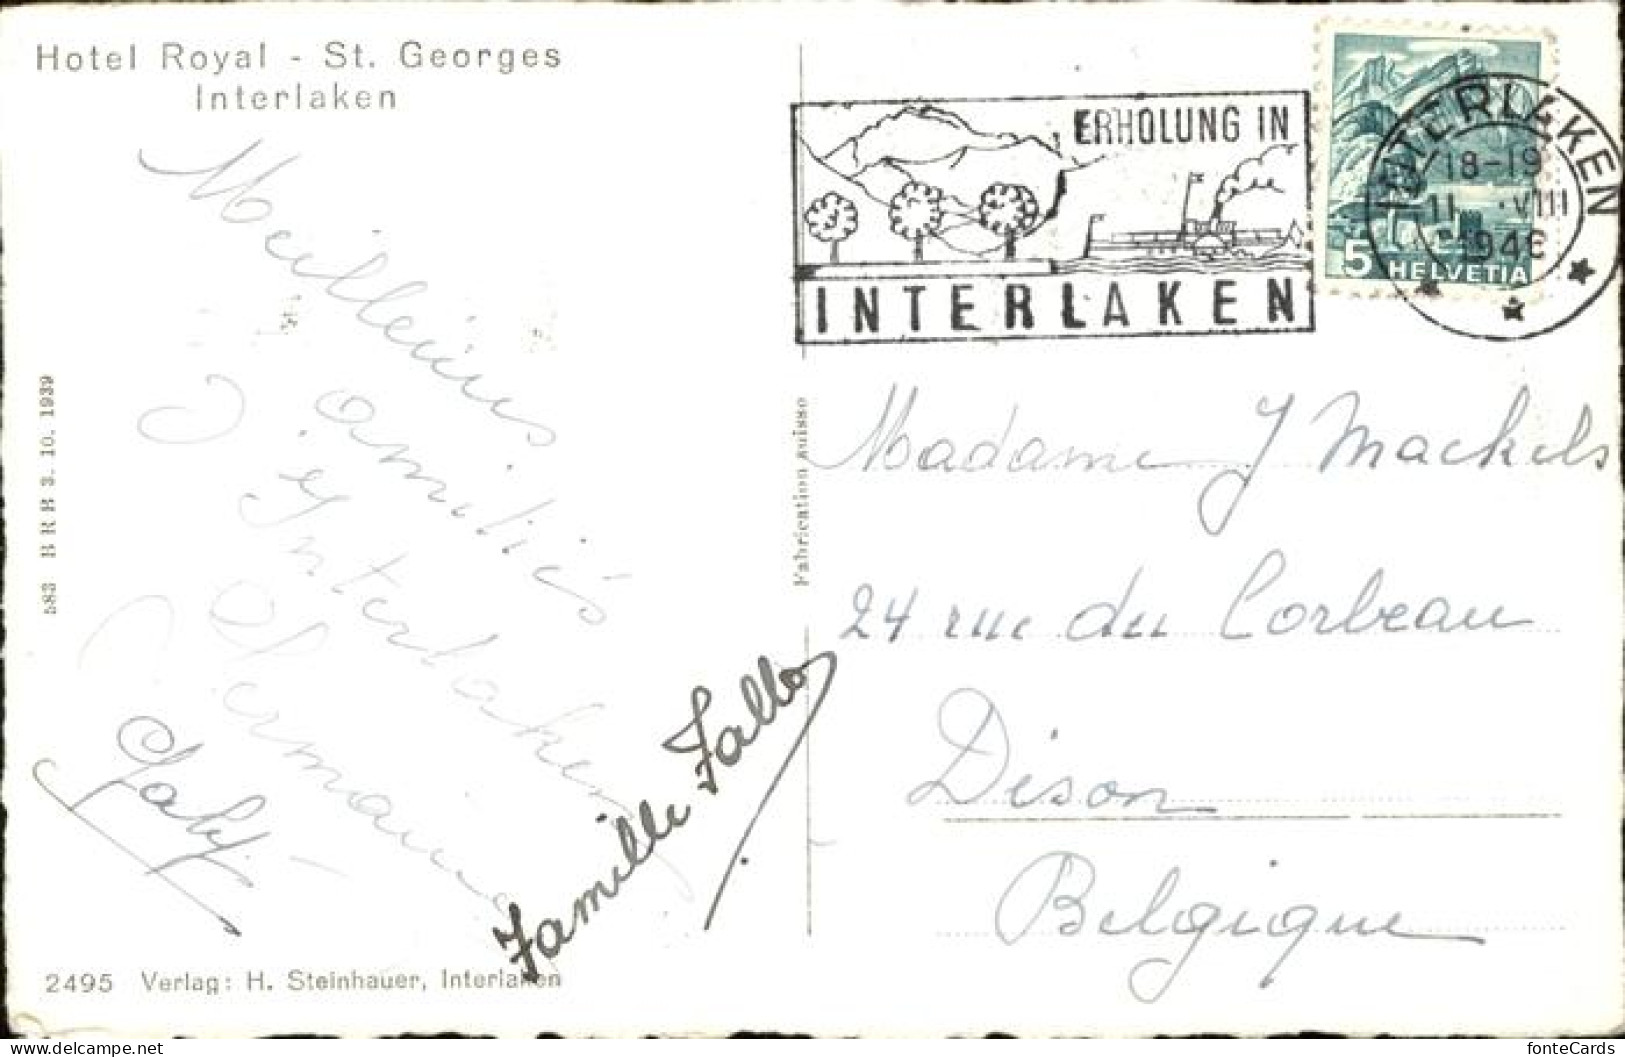 Hotel Royal - St. Georges
Interlaken
Meilleures
amitiés
d'Interlaken
Germaine
Famille Fallo
583 B R B 3. 10. 1939
2495 Verlag: H. Steinhauer, Interlaken
Fabrication suisse
ERHOLUNG IN
INTERLAKEN
INTERLAKEN
18-19
11. VIII
1946
5 HELVETIA
Madame J Mackels
24 rue du Corbeau
Dison
Belgique
fonteCards
https://www.delcampe.net